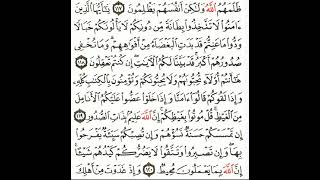 ظَلَمَهُمُ اللَّهُ وَلَٰكِنْ أَنفُسَهُمْ يَظْلِمُونَ ١١٧ يَٰٓأَيُّهَا الَّذِينَ
ءَامَنُوا۟ لَا تَتَّخِذُوا۟ بِطَانَةً مِّن دُونِكُمْ لَا يَأْلُونَكُمْ خَبَالًا
وَدُّوا۟ مَا عَنِتُّمْ قَدْ بَدَتِ الْبَغْضَآءُ مِنْ أَفْوَٰهِهِمْ وَمَا تُخْفِى
صُدُورُهُمْ أَكْبَرُ قَدْ بَيَّنَّا لَكُمُ الْءَايَٰتِ إِن كُنتُمْ تَعْقِلُونَ ١١٨
هَٰٓأَنتُمْ أُو۟لَآءِ تُحِبُّونَهُمْ وَلَا يُحِبُّونَكُمْ وَتُؤْمِنُونَ بِالْكِتَٰبِ كُلِّهِۦ
وَإِذَا لَقُوكُمْ قَالُوٓا۟ ءَامَنَّا وَإِذَا خَلَوْا۟ عَضُّوا۟ عَلَيْكُمُ الْأَنَامِلَ
مِنَ الْغَيْظِ قُلْ مُوتُوا۟ بِغَيْظِكُمْ إِنَّ اللَّهَ عَلِيمٌۢ بِذَاتِ الصُّدُورِ ١١٩
إِن تَمْسَسْكُمْ حَسَنَةٌ تَسُؤْهُمْ وَإِن تُصِبْكُمْ سَيِّئَةٌ يَفْرَحُوا۟
بِهَا وَإِن تَصْبِرُوا۟ وَتَتَّقُوا۟ لَا يَضُرُّكُمْ كَيْدُهُمْ شَيْـًٔا
إِنَّ اللَّهَ بِمَا يَعْمَلُونَ مُحِيطٌ ١٢٠ وَإِذْ غَدَوْتَ مِنْ أَهْلِكَ